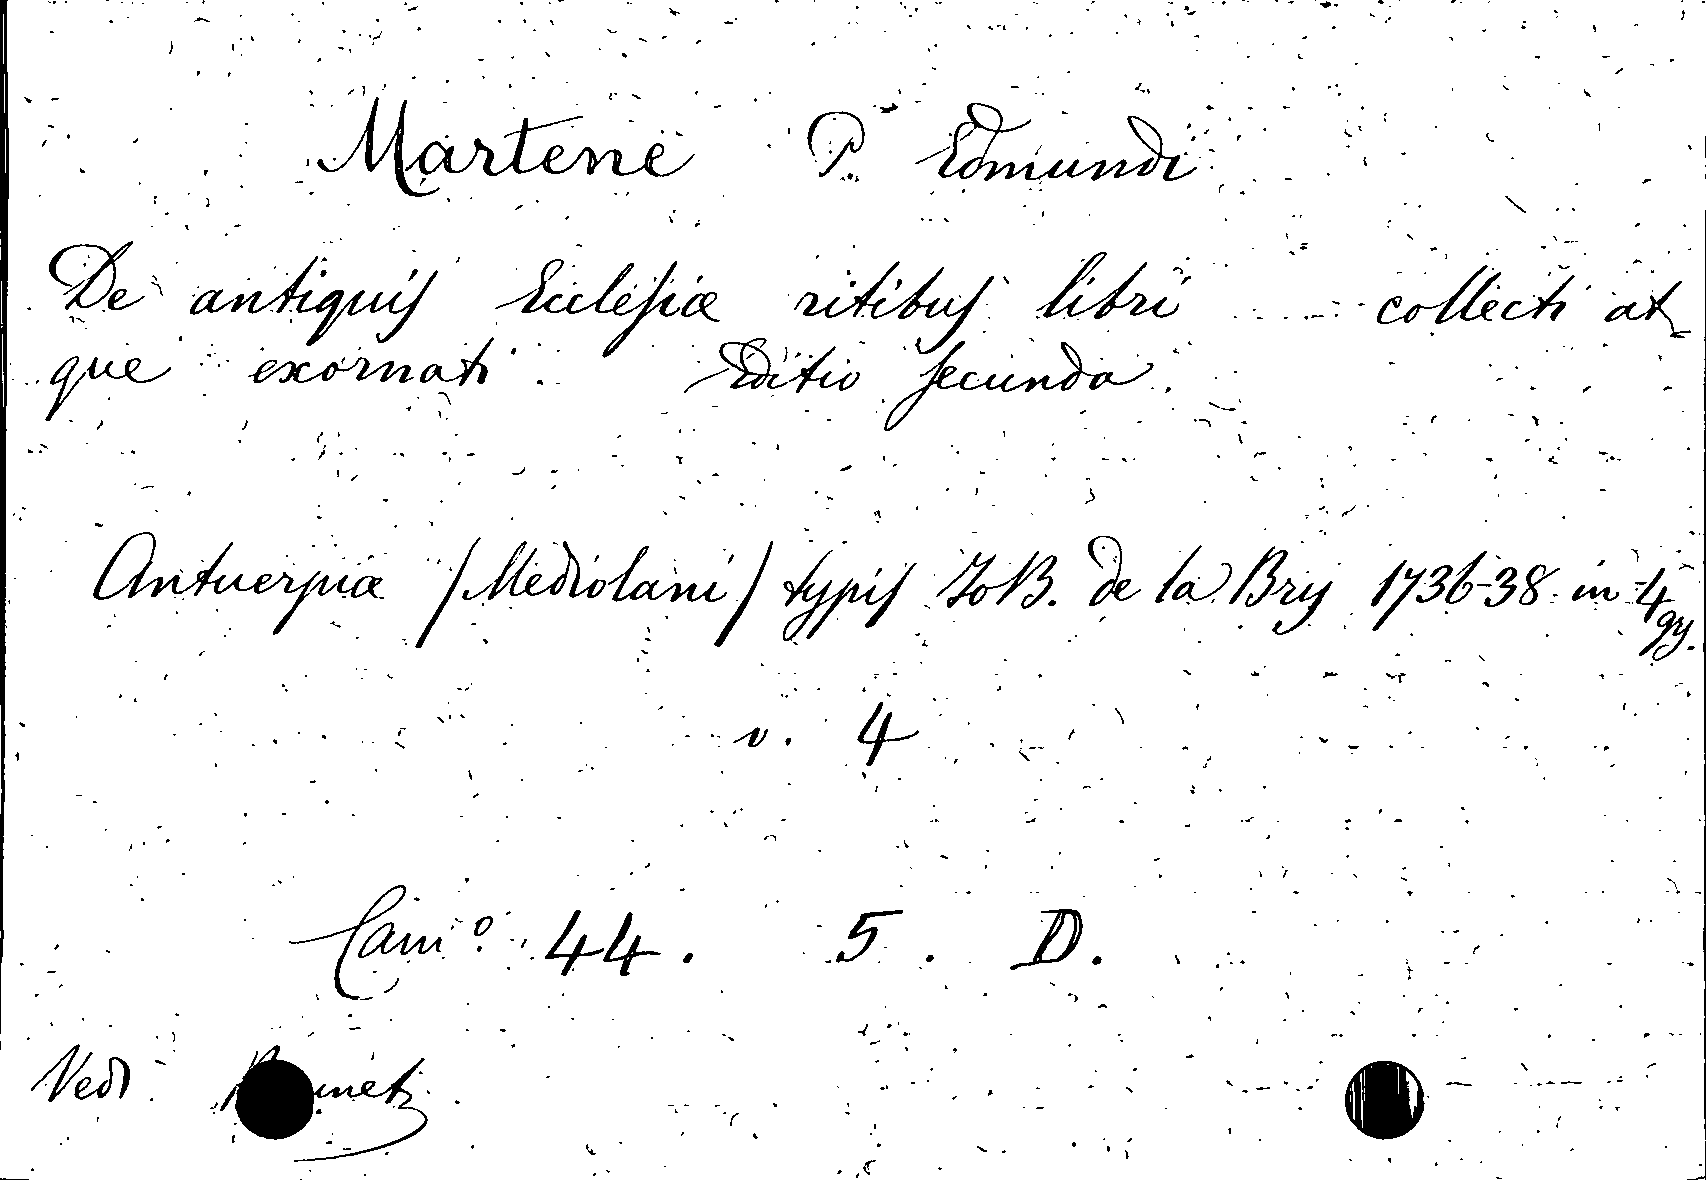 Martene P. Edmundi
De antiquis Ecclesiæ ritibus libri ... collecti at-
que exornati. Editio secunda.
Antuerpiæ /Mediolani/ typis JoB. de la Bry 1736-38 in-4
gr.
v. 4
Cam.º 44. 5. D.
Vedi